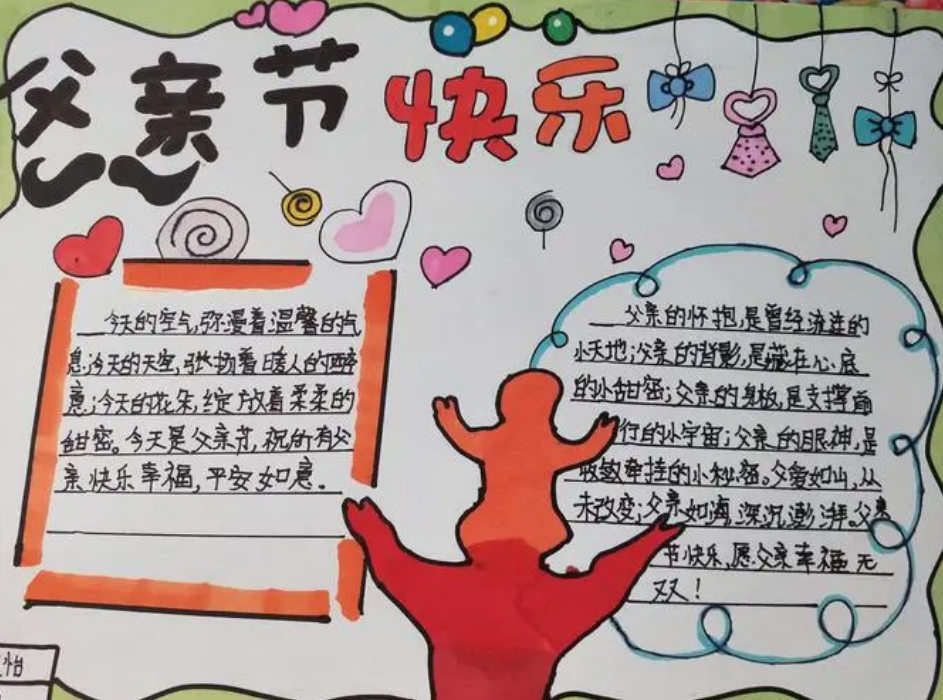 父亲节快乐
今天的空气,弥漫着温馨的气
息;今天的天空,张扬着暖人的醉
意;今天的花朵,绽放着柔柔的
甜密。今天是父亲节,祝所有父
亲快乐幸福,平安如意。
父亲的怀抱,是曾经流连的
小天地;父亲的背影,是藏在心底
的小甜密;父亲的身板,是支撑前
行的小宇宙;父亲的眼神,是
收敛牵挂的小秘密。父爱如山,从
未改变;父亲如海,深沉澎湃。父亲
节快乐,愿父亲幸福无
双!
怡